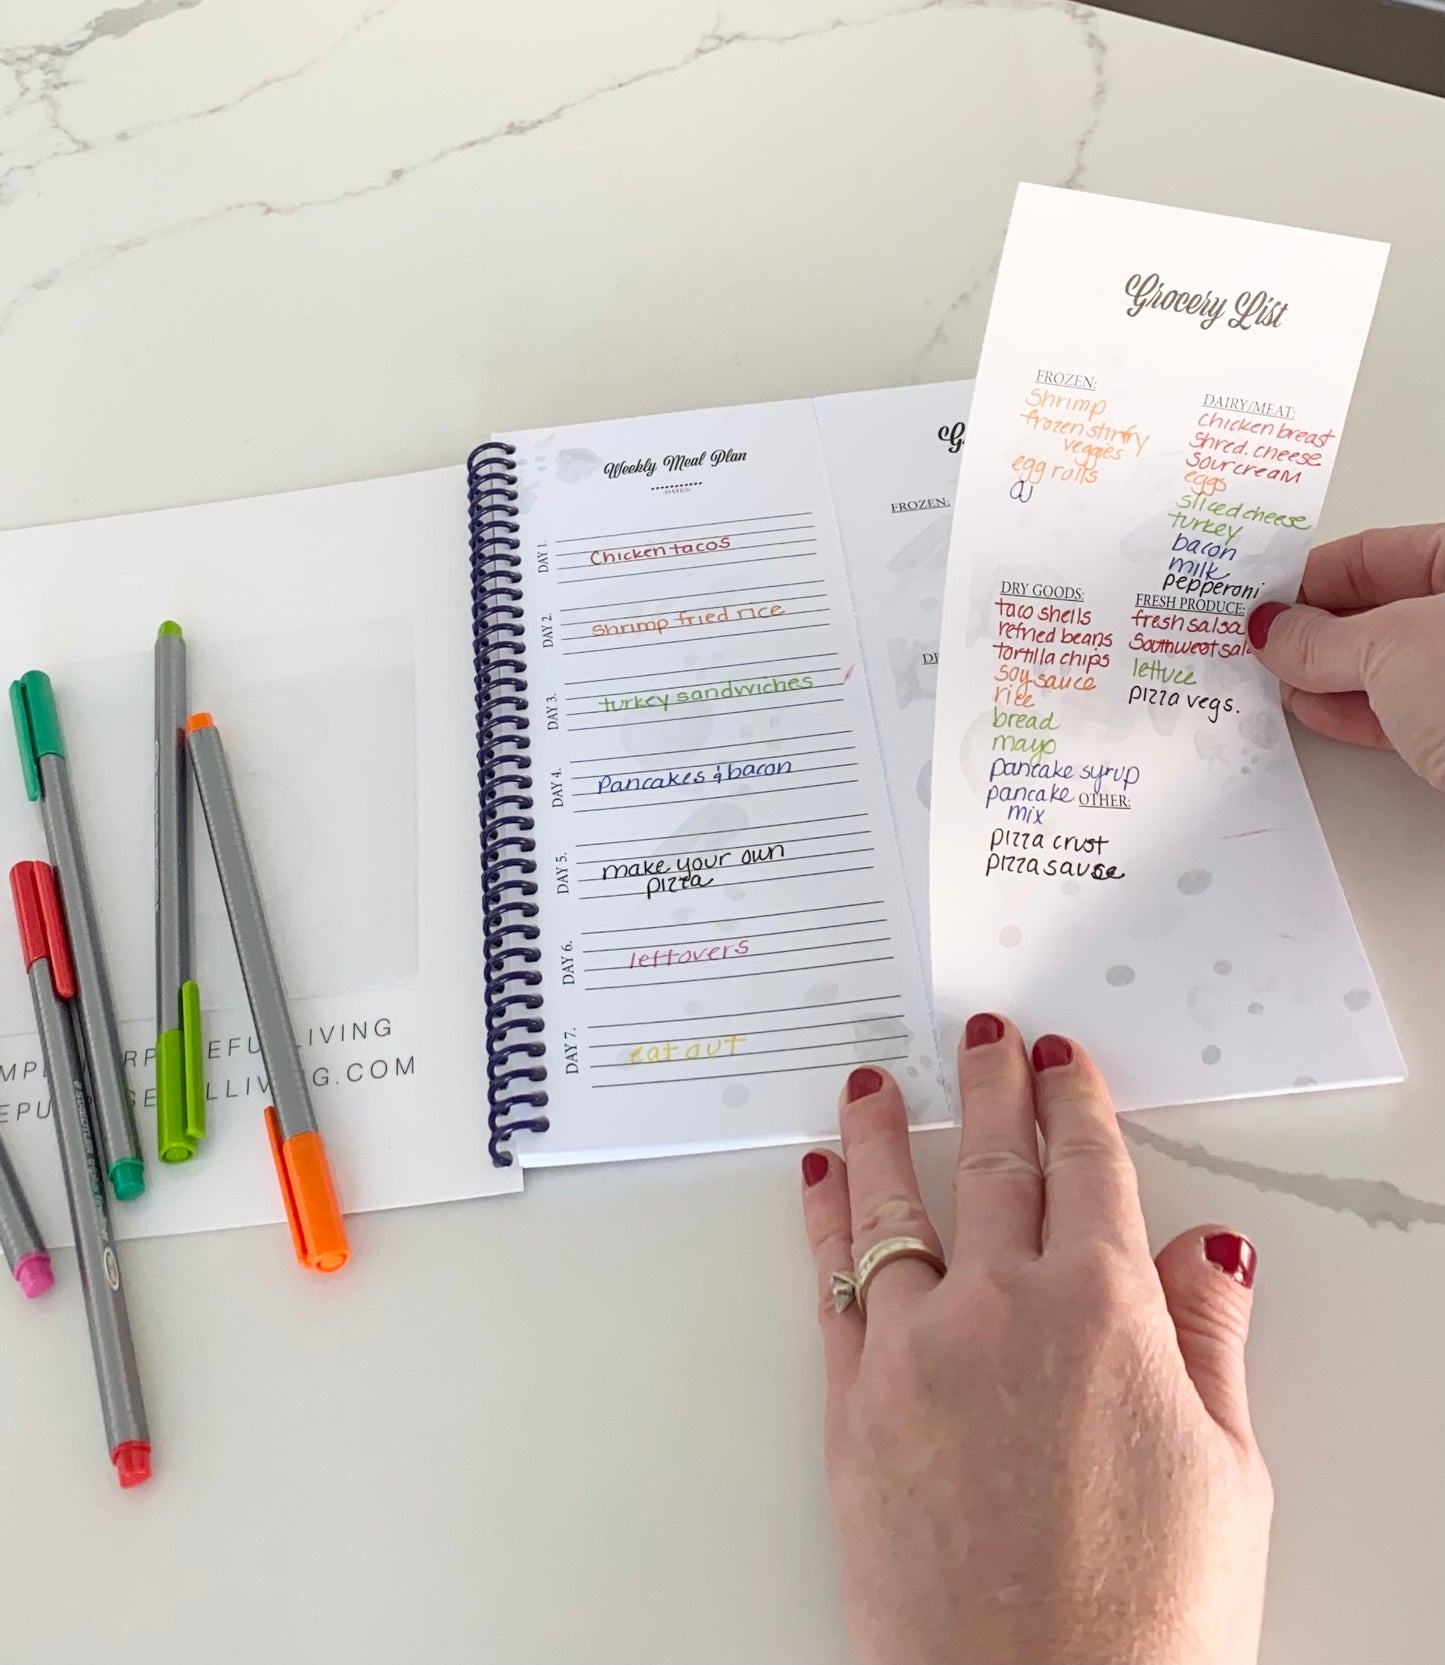 Weekly Meal Plan
DATES
DAY 1.
Chicken tacos
DAY 2.
Shrimp fried rice
DAY 3.
turkey sandwiches
DAY 4.
Pancakes & bacon
DAY 5.
make your own
pizza
DAY 6.
leftovers
DAY 7.
eat out
FROZEN:
Grocery List
FROZEN:
Shrimp
frozen stirfry
veggies
egg rolls
OJ
DAIRY/MEAT:
chicken breast
shred. cheese
sour cream
eggs
sliced cheese
turkey
bacon
milk
pepperoni
DRY GOODS:
taco shells
refried beans
tortilla chips
soy sauce
rice
bread
mayo
pancake syrup
pancake
mix
FRESH PRODUCE:
fresh salsa
Southwest
lettuce
pizza vegs.
OTHER:
pizza crust
pizza sauce
LIVING
.COM